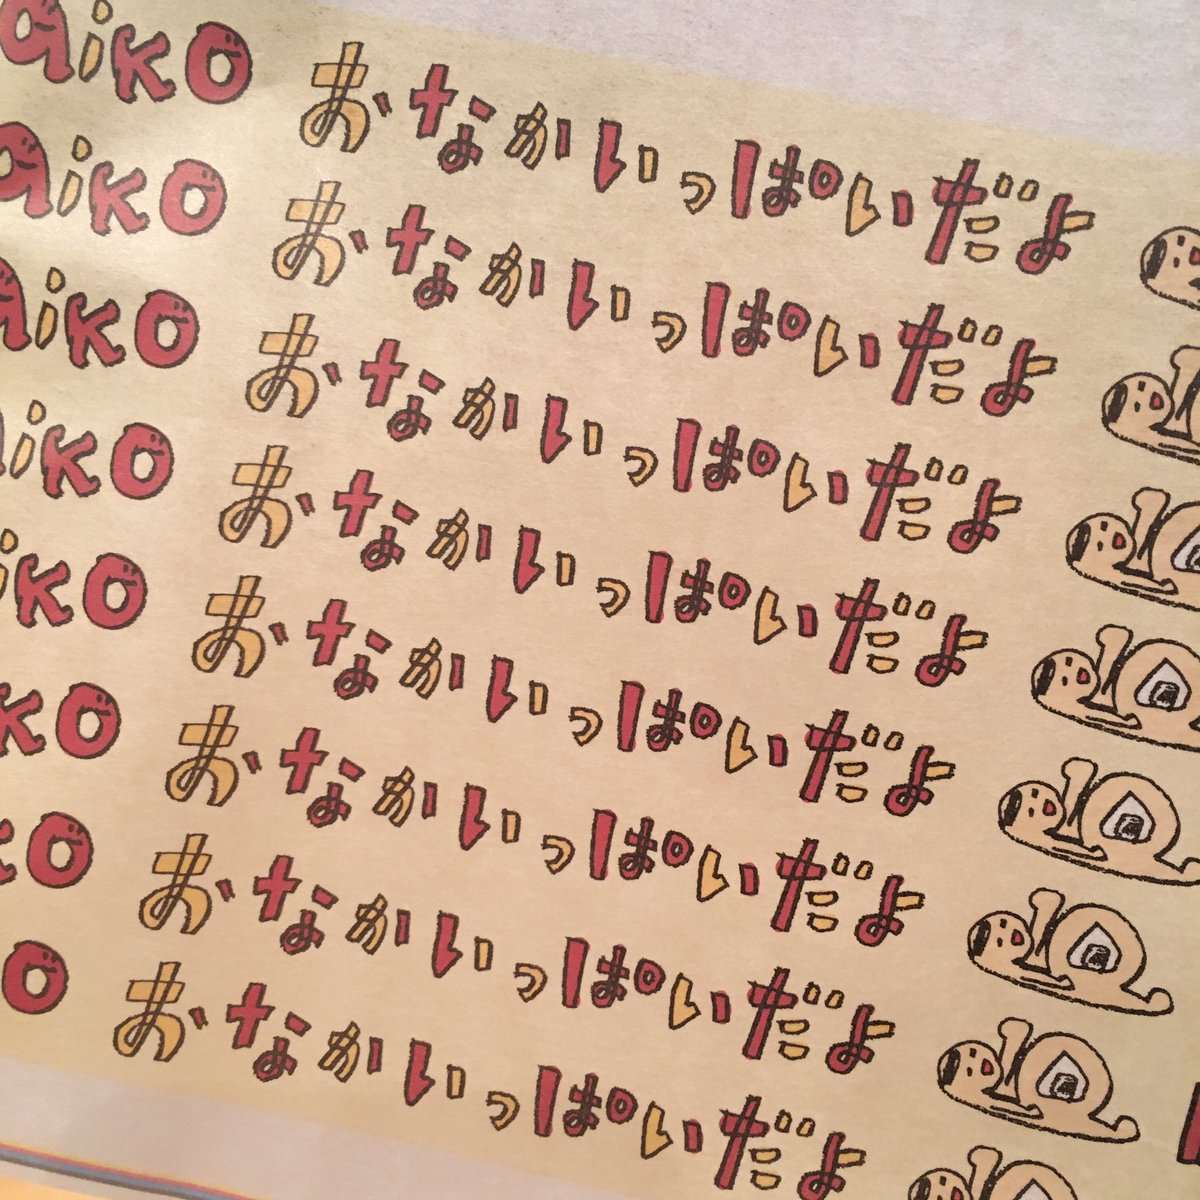 aiko おなかいっぱいだよ
aiko おなかいっぱいだよ
aiko おなかいっぱいだよ 10
iko おなかいっぱいだよ 10
iko おなかいっぱいだよ 10
ko おなかいっぱいだよ 10
ko おなかいっぱいだよ 10
o おなかいっぱいだよ 10